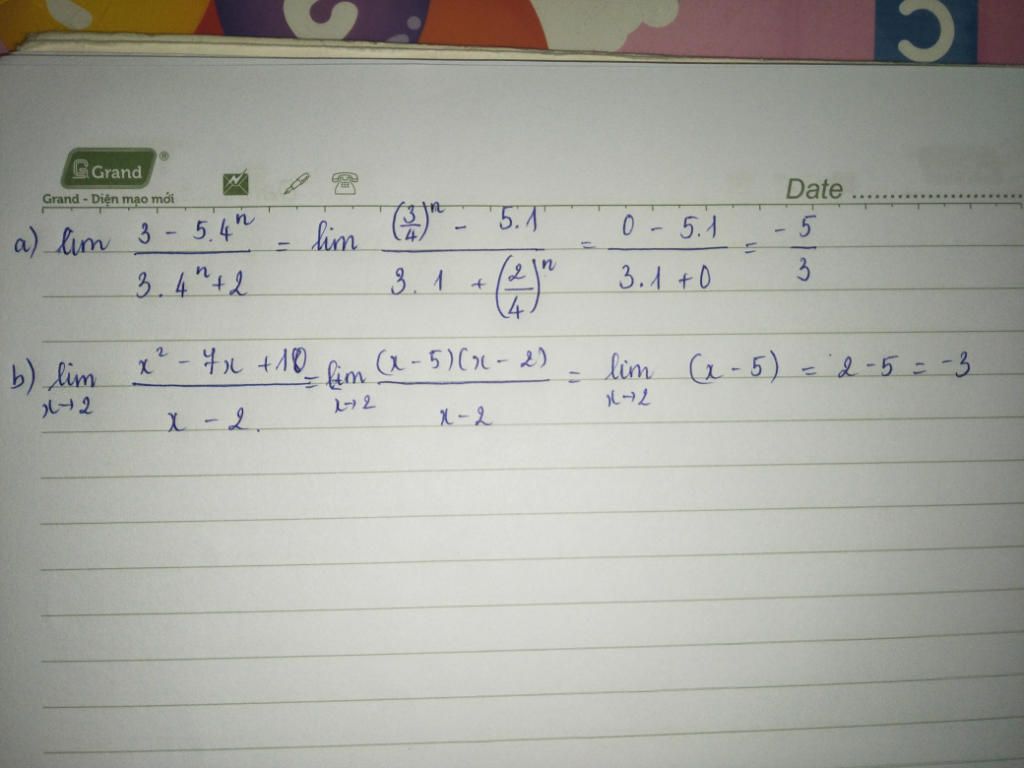 Grand®
Grand - Diện mạo mới
Date
a) lim (3 - 5.4^n)/(3.4^n + 2) = lim ((3/4)^n - 5.1)/(3.1 + (2/4)^n) = (0 - 5.1)/(3.1 + 0) = (-5)/3
b) lim_{x→2} (x² - 7x + 10)/(x - 2.) = lim_{x→2} ((x - 5)(x - 2))/(x - 2) = lim_{x→2} (x - 5) = 2 - 5 = -3